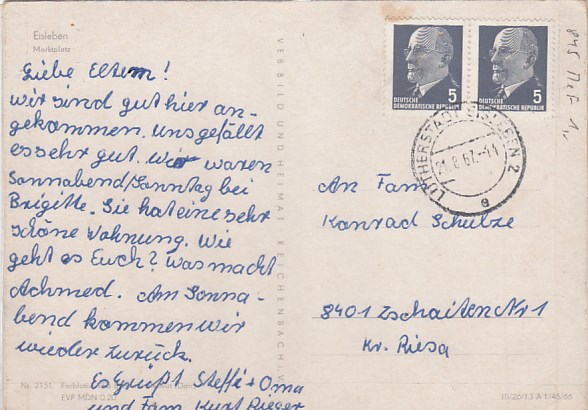 Eisleben
Marktplatz
Liebe Eltern!
wir sind gut hier an-
gekommen. uns gefällt
es sehr gut. Wir waren
Sonnabend/Sonntag bei
Brigitte. Sie hat eine sehr
schöne Wohnung. Wie
geht es Euch? was macht
Achmed. Am Sonna-
bend kommen wir
wieder zurück.
Es Grüßt Steffi + Oma
und Fam. Kurt Rieger
Nr. 2151
EVP MDN 0.20
VERB BILD UND HEIMAT REICHENBACH V
DEUTSCHE
DEMOKRATISCHE REPUBLIK
5
DEUTSCHE
DEMOKRATISCHE REPUBLIK
5
LUTHERSTADT EISLEBEN 2
21.8.67.-11
e
845
An Fam
Konrad Schulze
8401 Zschaiten Nr 1
Kr. Riesa
III/26/13 A 1/45/66